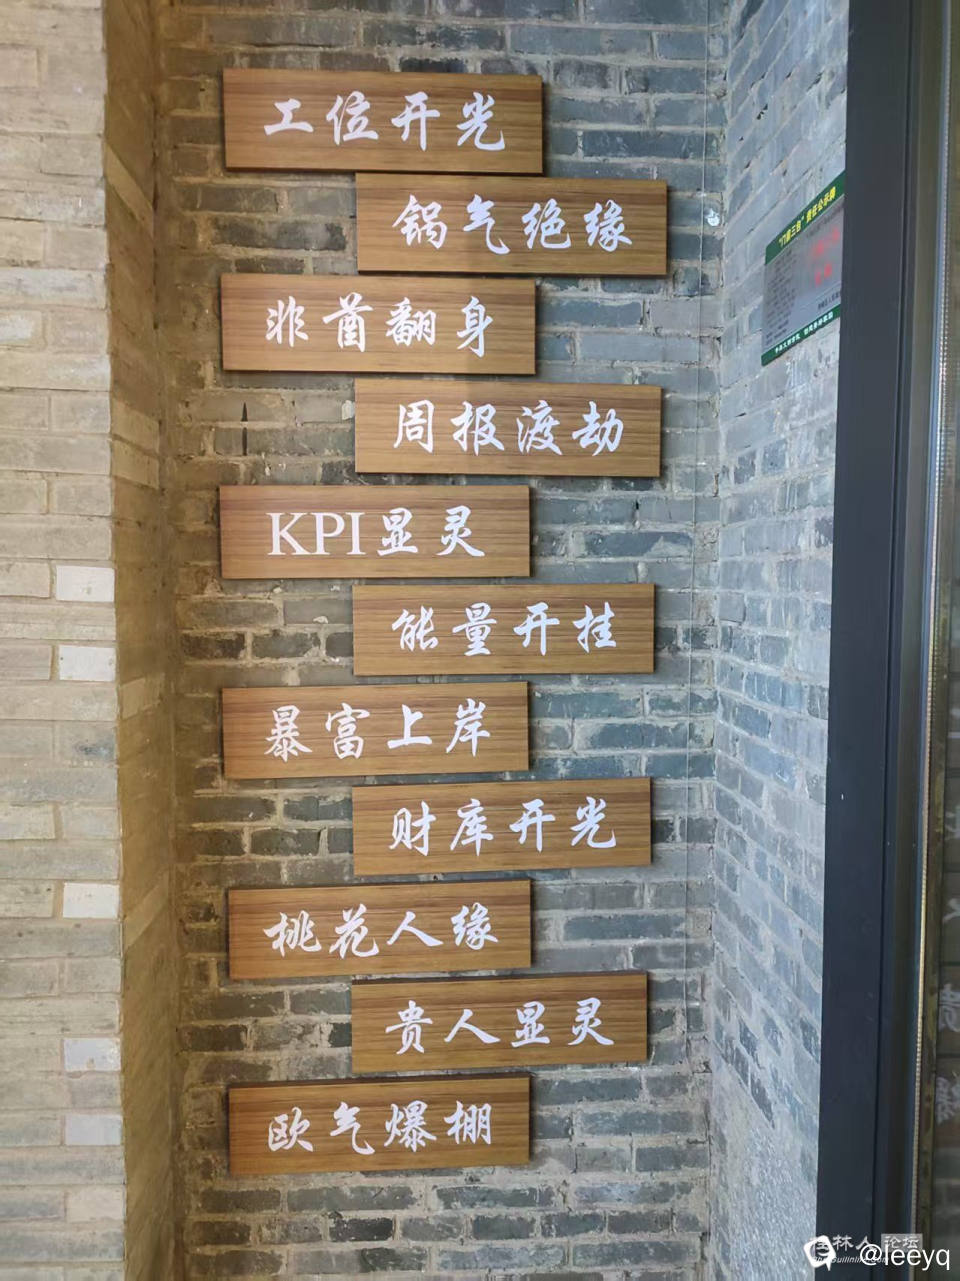 工位开光
锅气绝缘
非酋翻身
周报渡劫
KPI显灵
能量开挂
暴富上岸
财库开光
桃花人缘
贵人显灵
欧气爆棚
"门前三包"责任公示牌
桂林人论坛
@leeyq